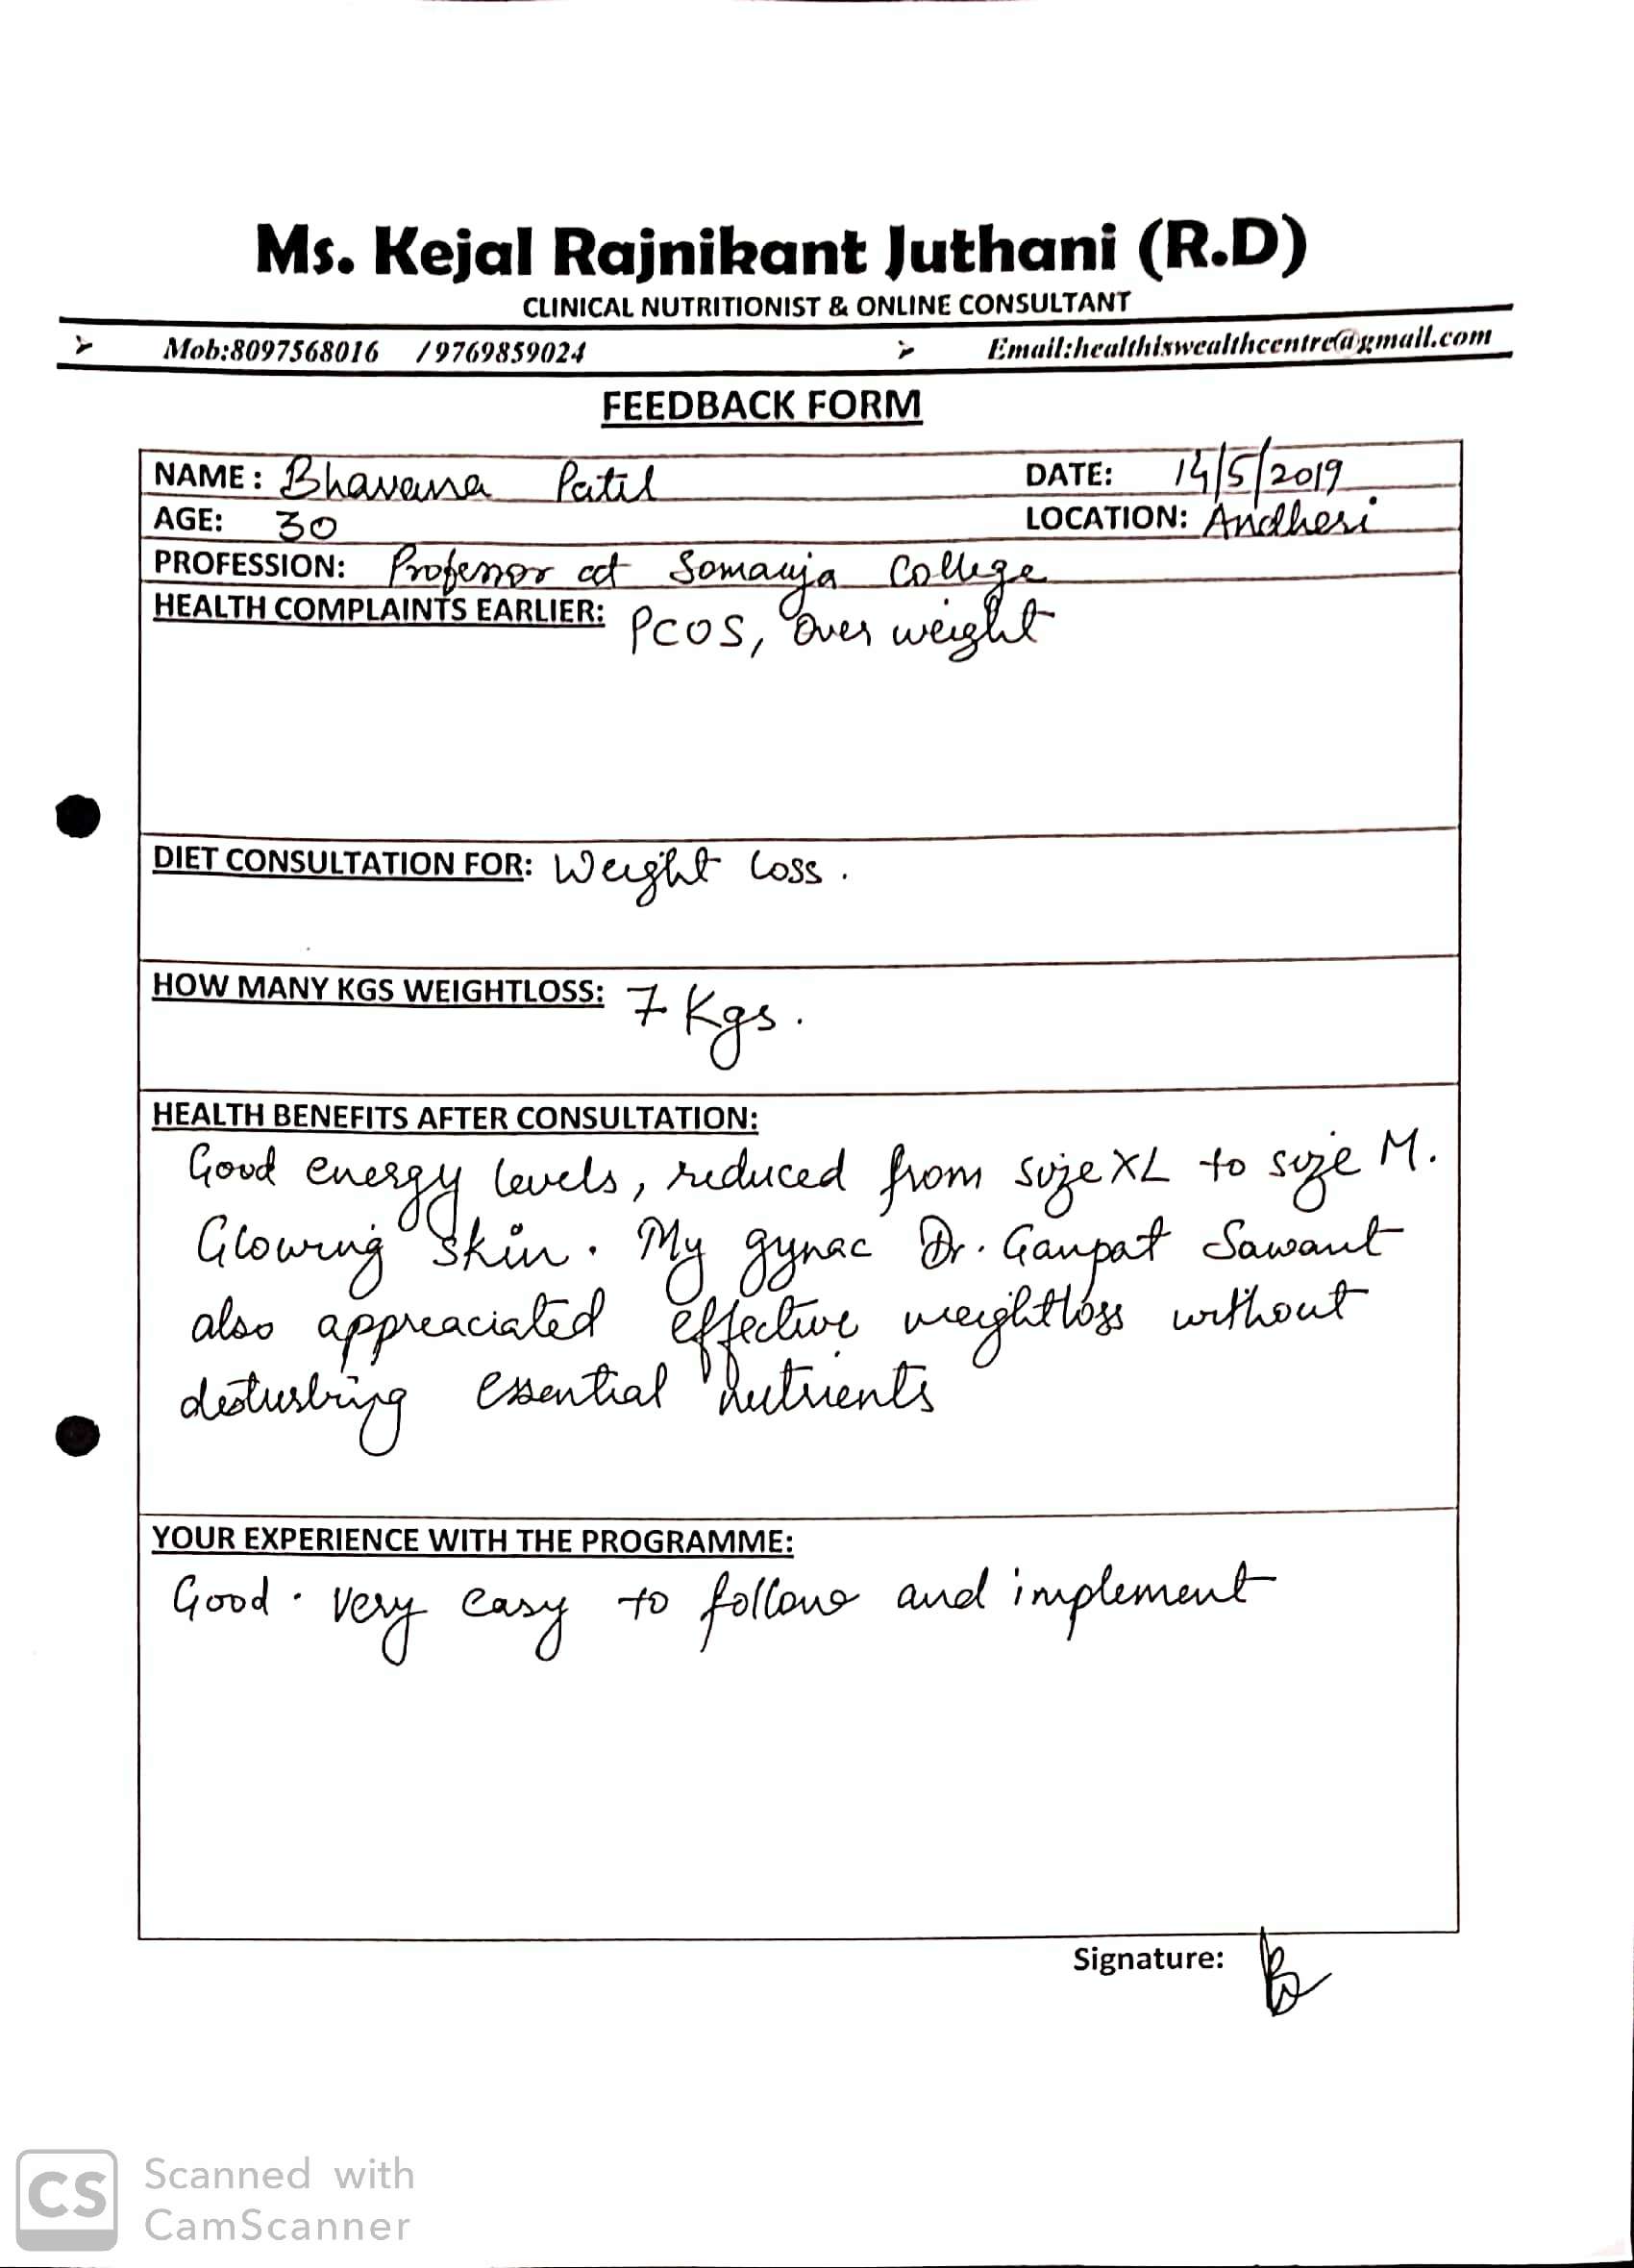 Ms. Kejal Rajnikant Juthani (R.D)
CLINICAL NUTRITIONIST & ONLINE CONSULTANT
➢ Mob:8097568016 /9769859024 ➢ Email:healthiswealthcentre@gmail.com
FEEDBACK FORM
NAME: Bhavana Patil DATE: 14/5/2019
AGE: 30 LOCATION: Andheri
PROFESSION: Professor at Somaiya College
HEALTH COMPLAINTS EARLIER: PCOS, Over weight
DIET CONSULTATION FOR: Weight loss.
HOW MANY KGS WEIGHTLOSS: 7 Kgs.
HEALTH BENEFITS AFTER CONSULTATION:
Good energy levels, reduced from size XL to size M.
Glowing skin. My gynac Dr. Ganpat Sawant
also appreaciated effective weightloss without
disturbing essential nutrients
YOUR EXPERIENCE WITH THE PROGRAMME:
Good. Very easy to follow and implement
Signature:
CS Scanned with
CamScanner